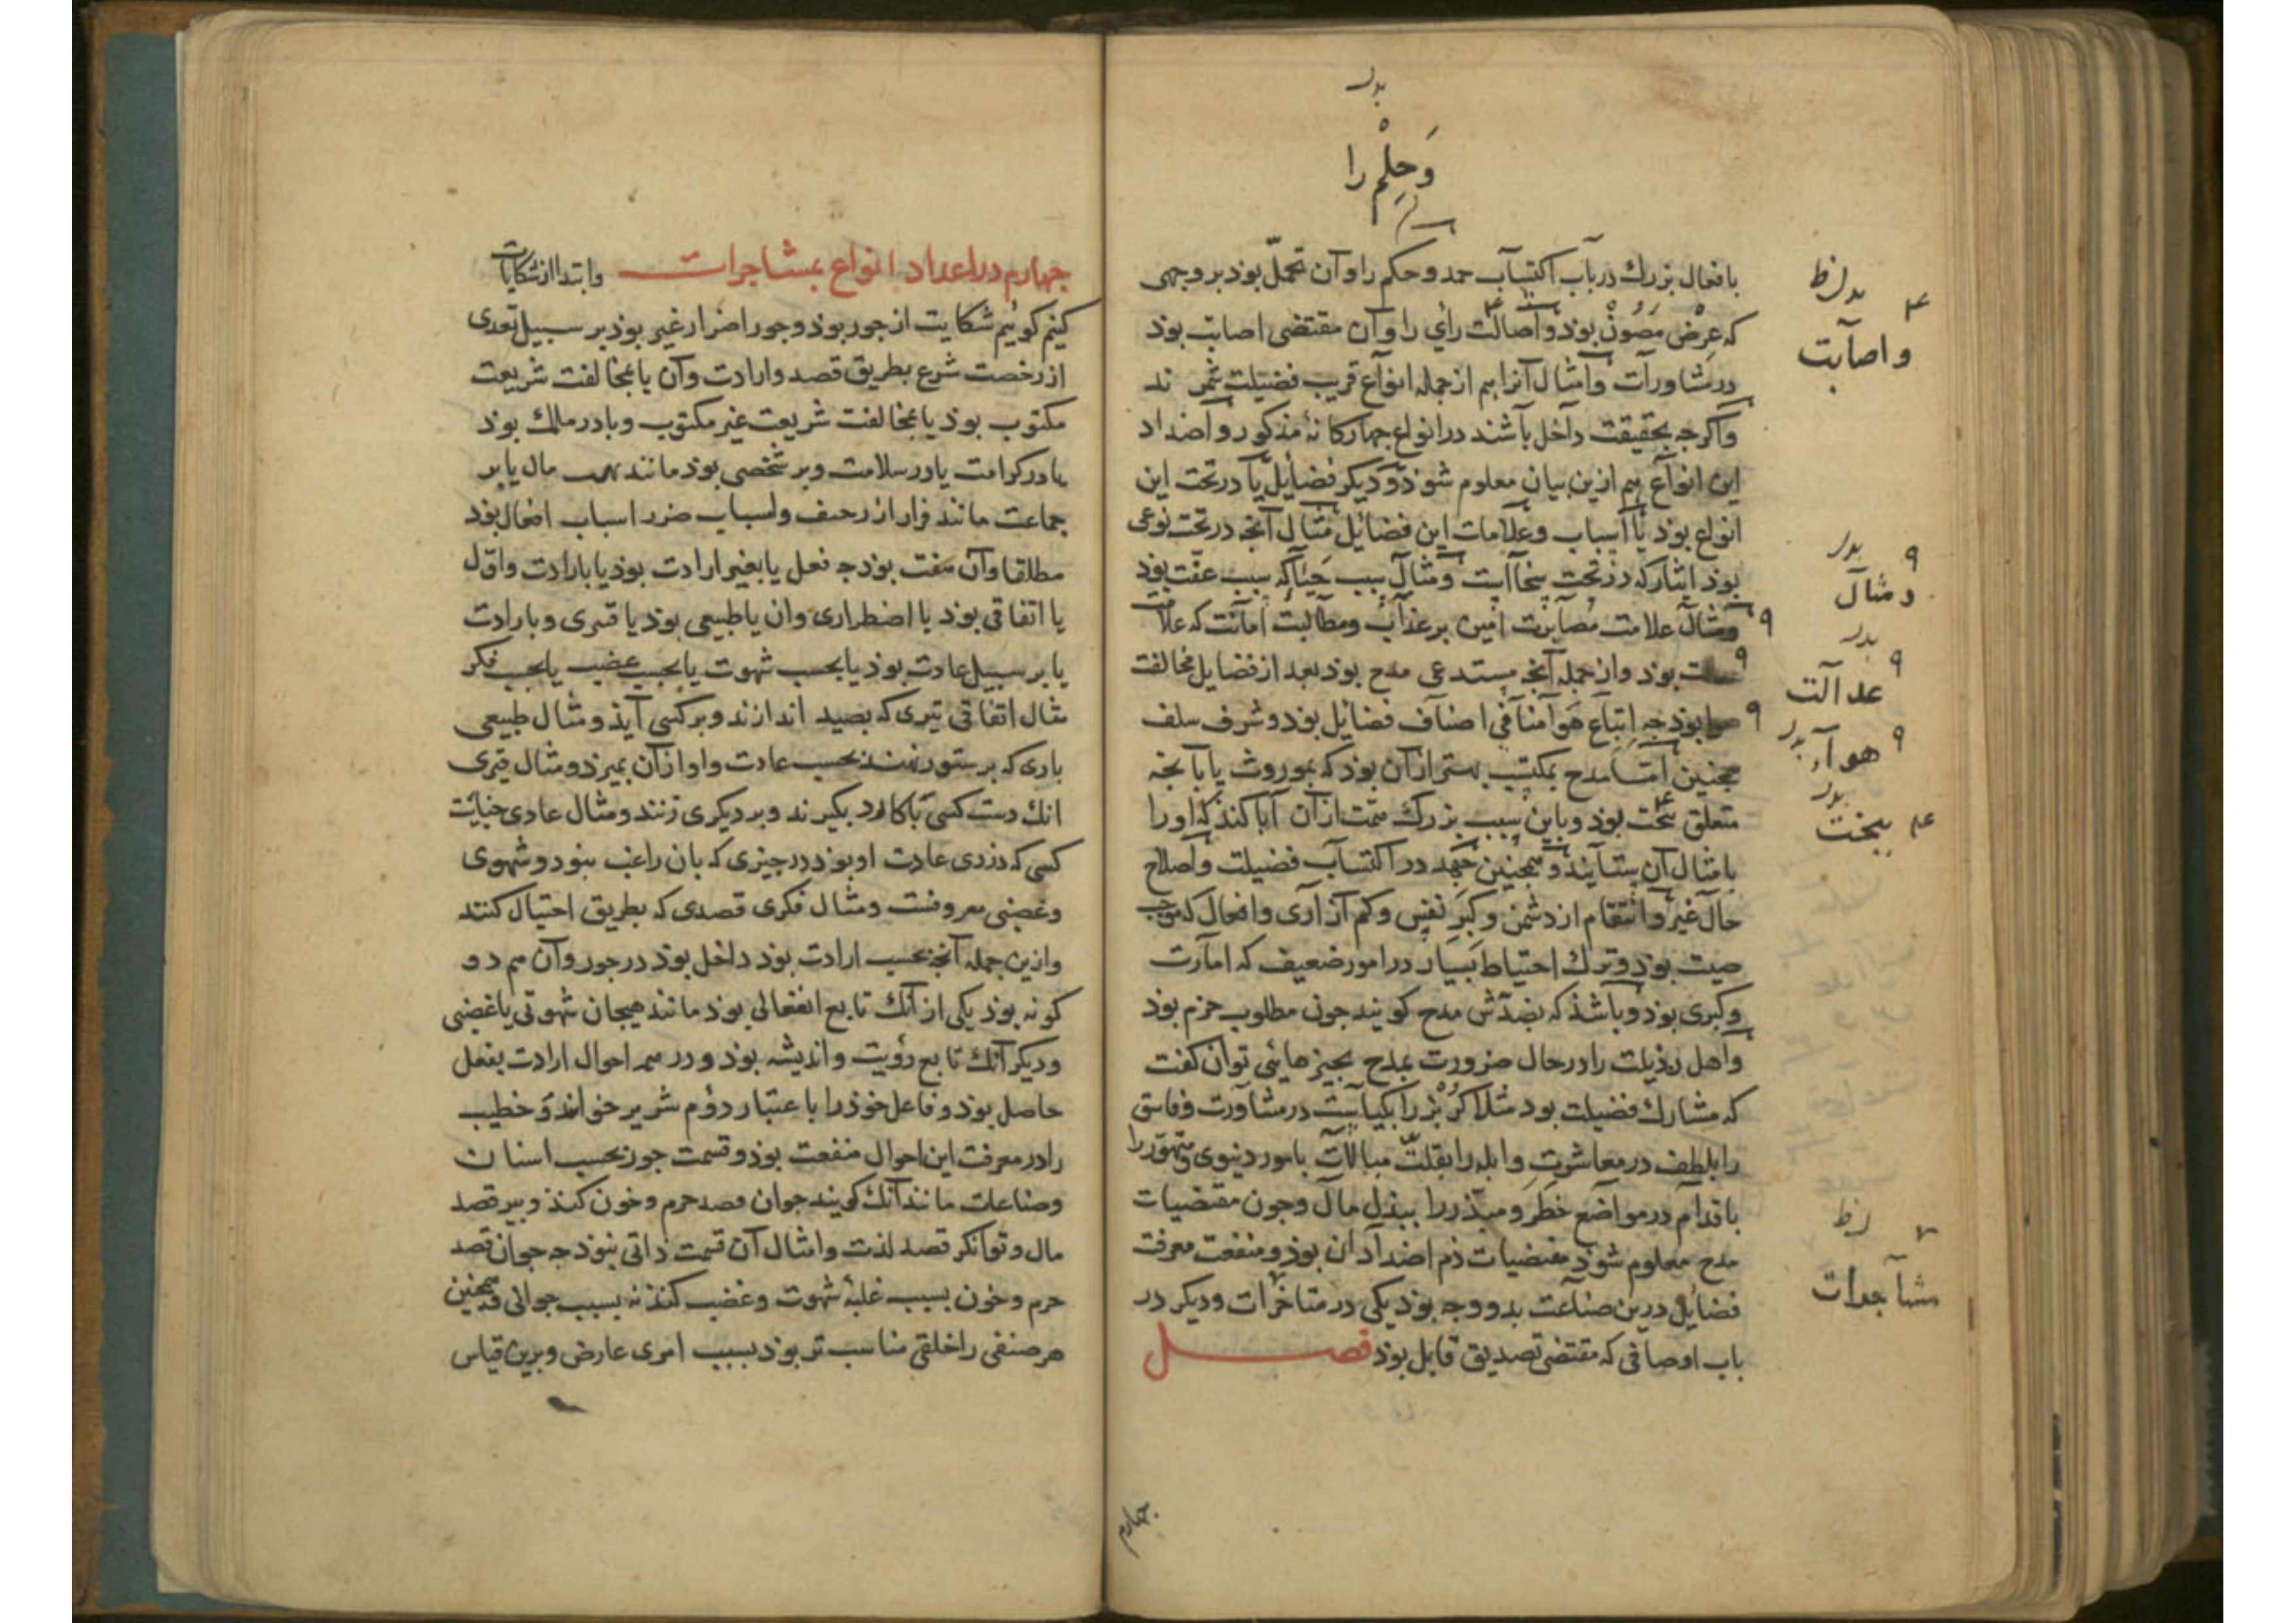 بدل
وَحِلْم را
بافعال بزرك در باب اكتساب حمد و حكم را و آن تحمّل بوذ بر وجهى
كه عِرْض مَصُونْ بوذ و اصالت رأي را و آن مقتضى اصابت بوذ
در مشاورات و امثال آنرا هم از جمله انواع قريب فضيلت شمرند
و اكرجه بحقيقت داخل باشند در انواع جهاركانهٔ مذكور و اضداد
اين انواع هم ازين بيان معلوم شوذ و ديكر فضايل يا در تحت اين
انواع بوذ يا اسباب و علامات اين فضائل مثال آنجه در تحت نوعى
بوذ ايثار كه در تحت سخا است و مثال سبب حيا كه سبب عفّت بوذ
و مثال علامت مصابرت امين بر عذاب و مطالبت امانت كه علامت
بوذ و از جمله آنجه مستدعى مدح بوذ بعد از فضايل مخالفت
بوذ جه اتباع هوا منافى اصناف فضائل بوذ و شرف سلف
همجنين امّا مدح بمكتسب بهتر از آن بوذ كه بموروث يا بآنجه
متعلق بخت بوذ و باين سبب بزرك همّت از آن ابا كند كه او را
بامثال آن بستايند و همجنين جهد در اكتساب فضيلت و اصلاح
حال غير و انتقام از دشمن و كبَر نفس و كم آزارى و افعال كه موجب
صيت بوذ و ترك احتياط بسيار در امور ضعيف كه امارت
و كبرى بوذ و باشذ كه بضدّش مدح كويند جون مطلوب حزم بوذ
و اهل رذيلت را در حال ضرورت بمدح بجيزهائى توان كفت
كه مشارك فضيلت بود مثلا كُرْبُز را بكياست در مشاورت و فاسق
را بلطف در معاشرت و ابله را بقلّت مبالات بامور دنيوى و متهوّر را
باقدام در مواضع خطَر و مبذّر را ببذل مال و جون مقتضيات
مدح معلوم شوذ مقتضيات ذم اضداد آن بوذ و منفعت معرفت
فضايل درين صناعت بدو وجه بوذ يكى در مناخرات و ديكر در
باب اوصافى كه مقتضى تصديق قايل بوذ فصل
بدل نظ
و اصابت
بدل
و مثال
بدل
عدالت
هوا بدل
بدل
ببخت
نظ
مشاجرات
جهارم
جهارم در اعداد انواع بمشاجرات و ابتدا از شكايات
كنيم كوئيم شكايت از جور بوذ و جور اضرار غير بوذ بر سبيل تعدى
از رخصت شرع بطريق قصد و ارادت و آن يا بمخالفت شريعت
مكتوب بوذ يا بمخالفت شريعت غير مكتوب و يا در ملك بوذ
يا در كرامت يا در سلامت و بر شخصى بوذ مانند مال يا بر
جماعت مانند فرار از زحف و اسباب ضرر اسباب افعال بوذ
مطلقا و آن هفت بوذ جه فعل يا بغير ارادت بوذ يا بارادت و اوّل
يا اتفاقى بوذ يا اضطرارى و آن يا طبيعى بوذ يا قسرى و بارادت
يا بر سبيل عادت بوذ يا بحسب شهوت يا بحسب غضب يا بحسب فكر
مثال اتفاقى تيرى كه بصيد اندازند و بر كسى آيذ و مثال طبيعى
بارى كه بر ستور نهند بحسب عادت و او از آن بميرذ و مثال قسرى
انك دست كسى با كارد بكيرند و بر ديكرى زنند و مثال عادى خيانت
كسى كه دزدى عادت او بوذ در جيزى كه بان راغب نبود و شهوى
و غضبى معروفست و مثال فكرى قصدى كه بطريق احتيال كنند
و ازين جمله آنجه بحسب ارادت بوذ داخل بوذ در جور و آن هم دو
كونه بوذ يكى از آنك تابع انفعالى بوذ مانند هيجان شهوتى يا غضبى
و ديكر آنك تابع رؤيت و انديشه بوذ و در همه احوال ارادت بفعل
حاصل بوذ و فاعل خوذ را باعتبار دوُم شرير خوانند و خطيب
را در معرفت اين احوال منفعت بوذ و قسمت جور بحسب اسنان
و صناعات مانند آنك كويند جوان قصد حرم و خون كند و پير قصد
مال و توانكر قصد لذت و امثال آن قسمت ذاتى نبوذ جه جوان قصد
حرم و خون بسبب غلبهٔ شهوت و غضب كند نه بسبب جوانى و همجنين
هر صنفى را خلقى مناسب تر بوذ بسبب امرى عارض و برين قياس